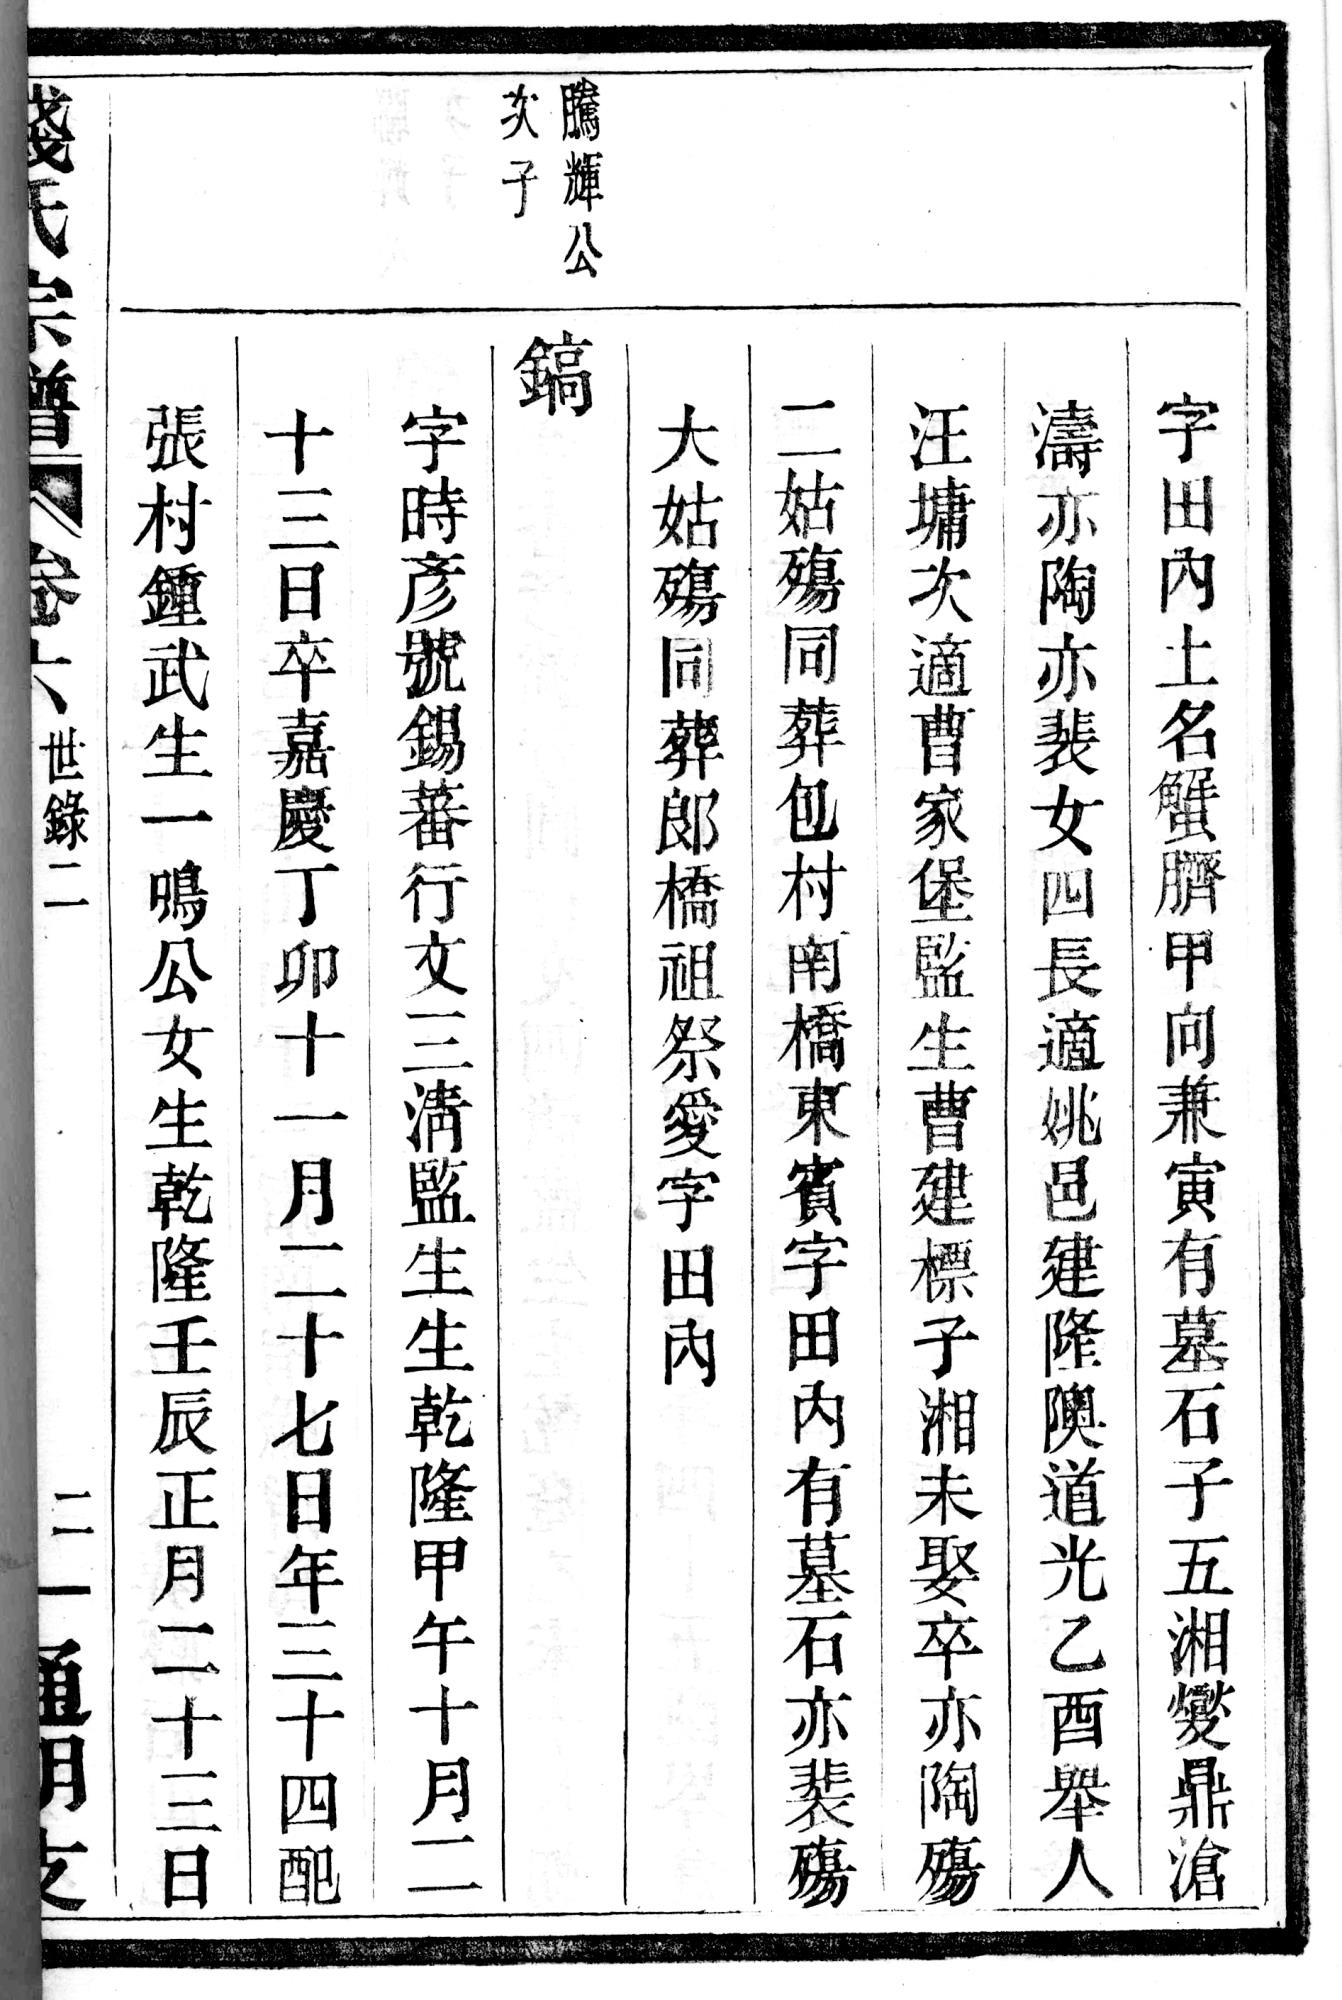 字田內土名蟹臍甲向兼寅有墓石子五湘燮鼎滄
濤亦陶亦裴女四長適姚邑建隆隩道光乙酉舉人
汪墉次適曹家堡監生曹建標子湘未娶卒亦陶殤
二姑殤同葬包村南橋東賓字田內有墓石亦裴殤
大姑殤同葬郎橋祖祭愛字田內
騰輝公
次子
鎬
字時彥號錫蕃行文三淸監生生乾隆甲午十月二
十三日卒嘉慶丁卯十一月二十七日年三十四配
張村鍾武生一鳴公女生乾隆壬辰正月二十三日
錢氏宗譜 卷六 世錄二 二一 通明支